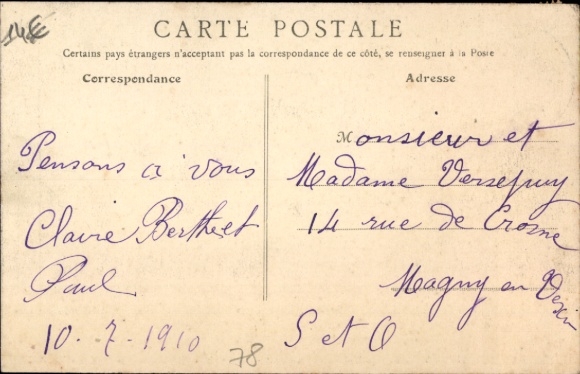 14€
CARTE POSTALE
Certains pays étrangers n'acceptant pas la correspondance de ce côté, se renseigner à la Poste
Correspondance
Pensons à vous
Claire Berthe et
Paul
10-7-1910
78
Adresse
Monsieur et
Madame Versepuy
14 rue de Crosne
Magny en Vexin
S et O